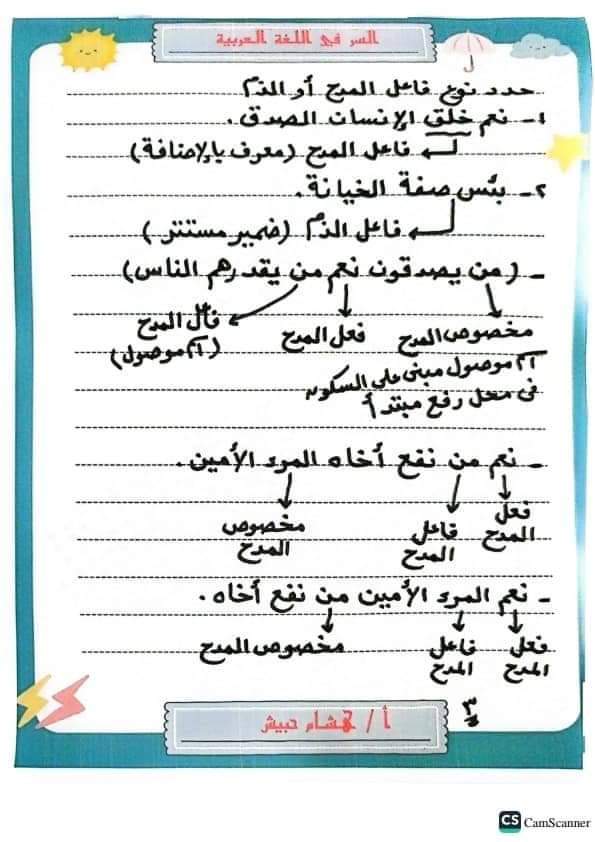 السر في اللغة العربية
حدد نوع فاعل المدح أو الذم
١- نعم خلق الإنسان الصدق.
فاعل المدح (معرف بالإضافة)
٢- بئس صفة الخيانة.
فاعل الذم (ضمير مستتر)
- (من يصدقون نعم من يقدرهم الناس)
مخصوص المدح فعل المدح فاعل المدح
(اسم موصول)
اسم موصول مبنى على السكون
فى محل رفع مبتدأ
- نعم من نفع أخاه المرء الأمين.
فعل المدح فاعل المدح مخصوص المدح
- نعم المرء الأمين من نفع أخاه.
فعل المدح فاعل المدح مخصوص المدح
٣
أ / هشام حبيش
CS CamScanner